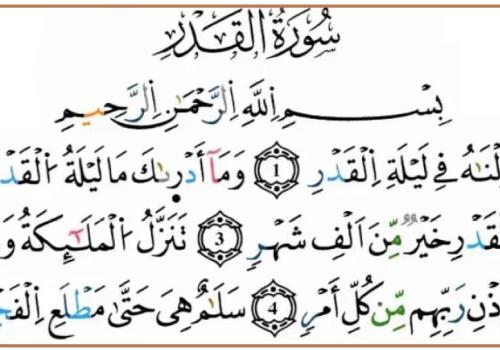 سُورَةُ الْقَدْرِ
بِسْمِ اللَّهِ الرَّحْمَٰنِ الرَّحِيمِ
فِي لَيْلَةِ الْقَدْرِ ١ وَمَا أَدْرَاكَ مَا لَيْلَةُ
خَيْرٌ مِّنْ أَلْفِ شَهْرٍ ٣ تَنَزَّلُ الْمَلَٰٓئِكَةُ
رَبِّهِم مِّن كُلِّ أَمْرٍ ٤ سَلَٰمٌ هِيَ حَتَّىٰ مَطْلَعِ